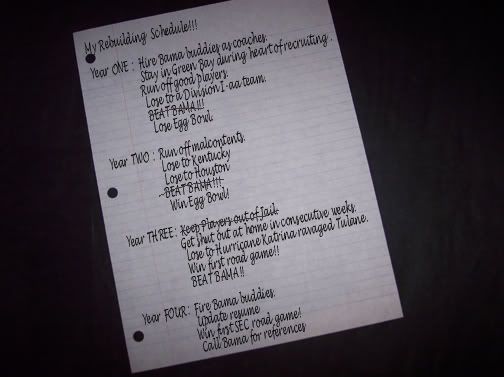 My Rebuilding Schedule!!!
Year ONE : Hire Bama buddies as coaches.
Stay in Green Bay during heart of recruiting.
Run off good players.
Lose to a Division 1-aa team.
BEAT BAMA!!!
Lose Egg Bowl.
Year TWO : Run off malcontents.
Lose to Kentucky
Lose to Houston
BEAT BAMA!!!
Win Egg Bowl!
Year THREE: Keep Players out of Jail.
Get shut out at home in consecutive weeks.
Lose to Hurricane Katrina ravaged Tulane.
Win first road game!!
BEAT BAMA!!
Year FOUR: Fire Bama buddies.
Update resume
Win first SEC road game!
Call Bama for references